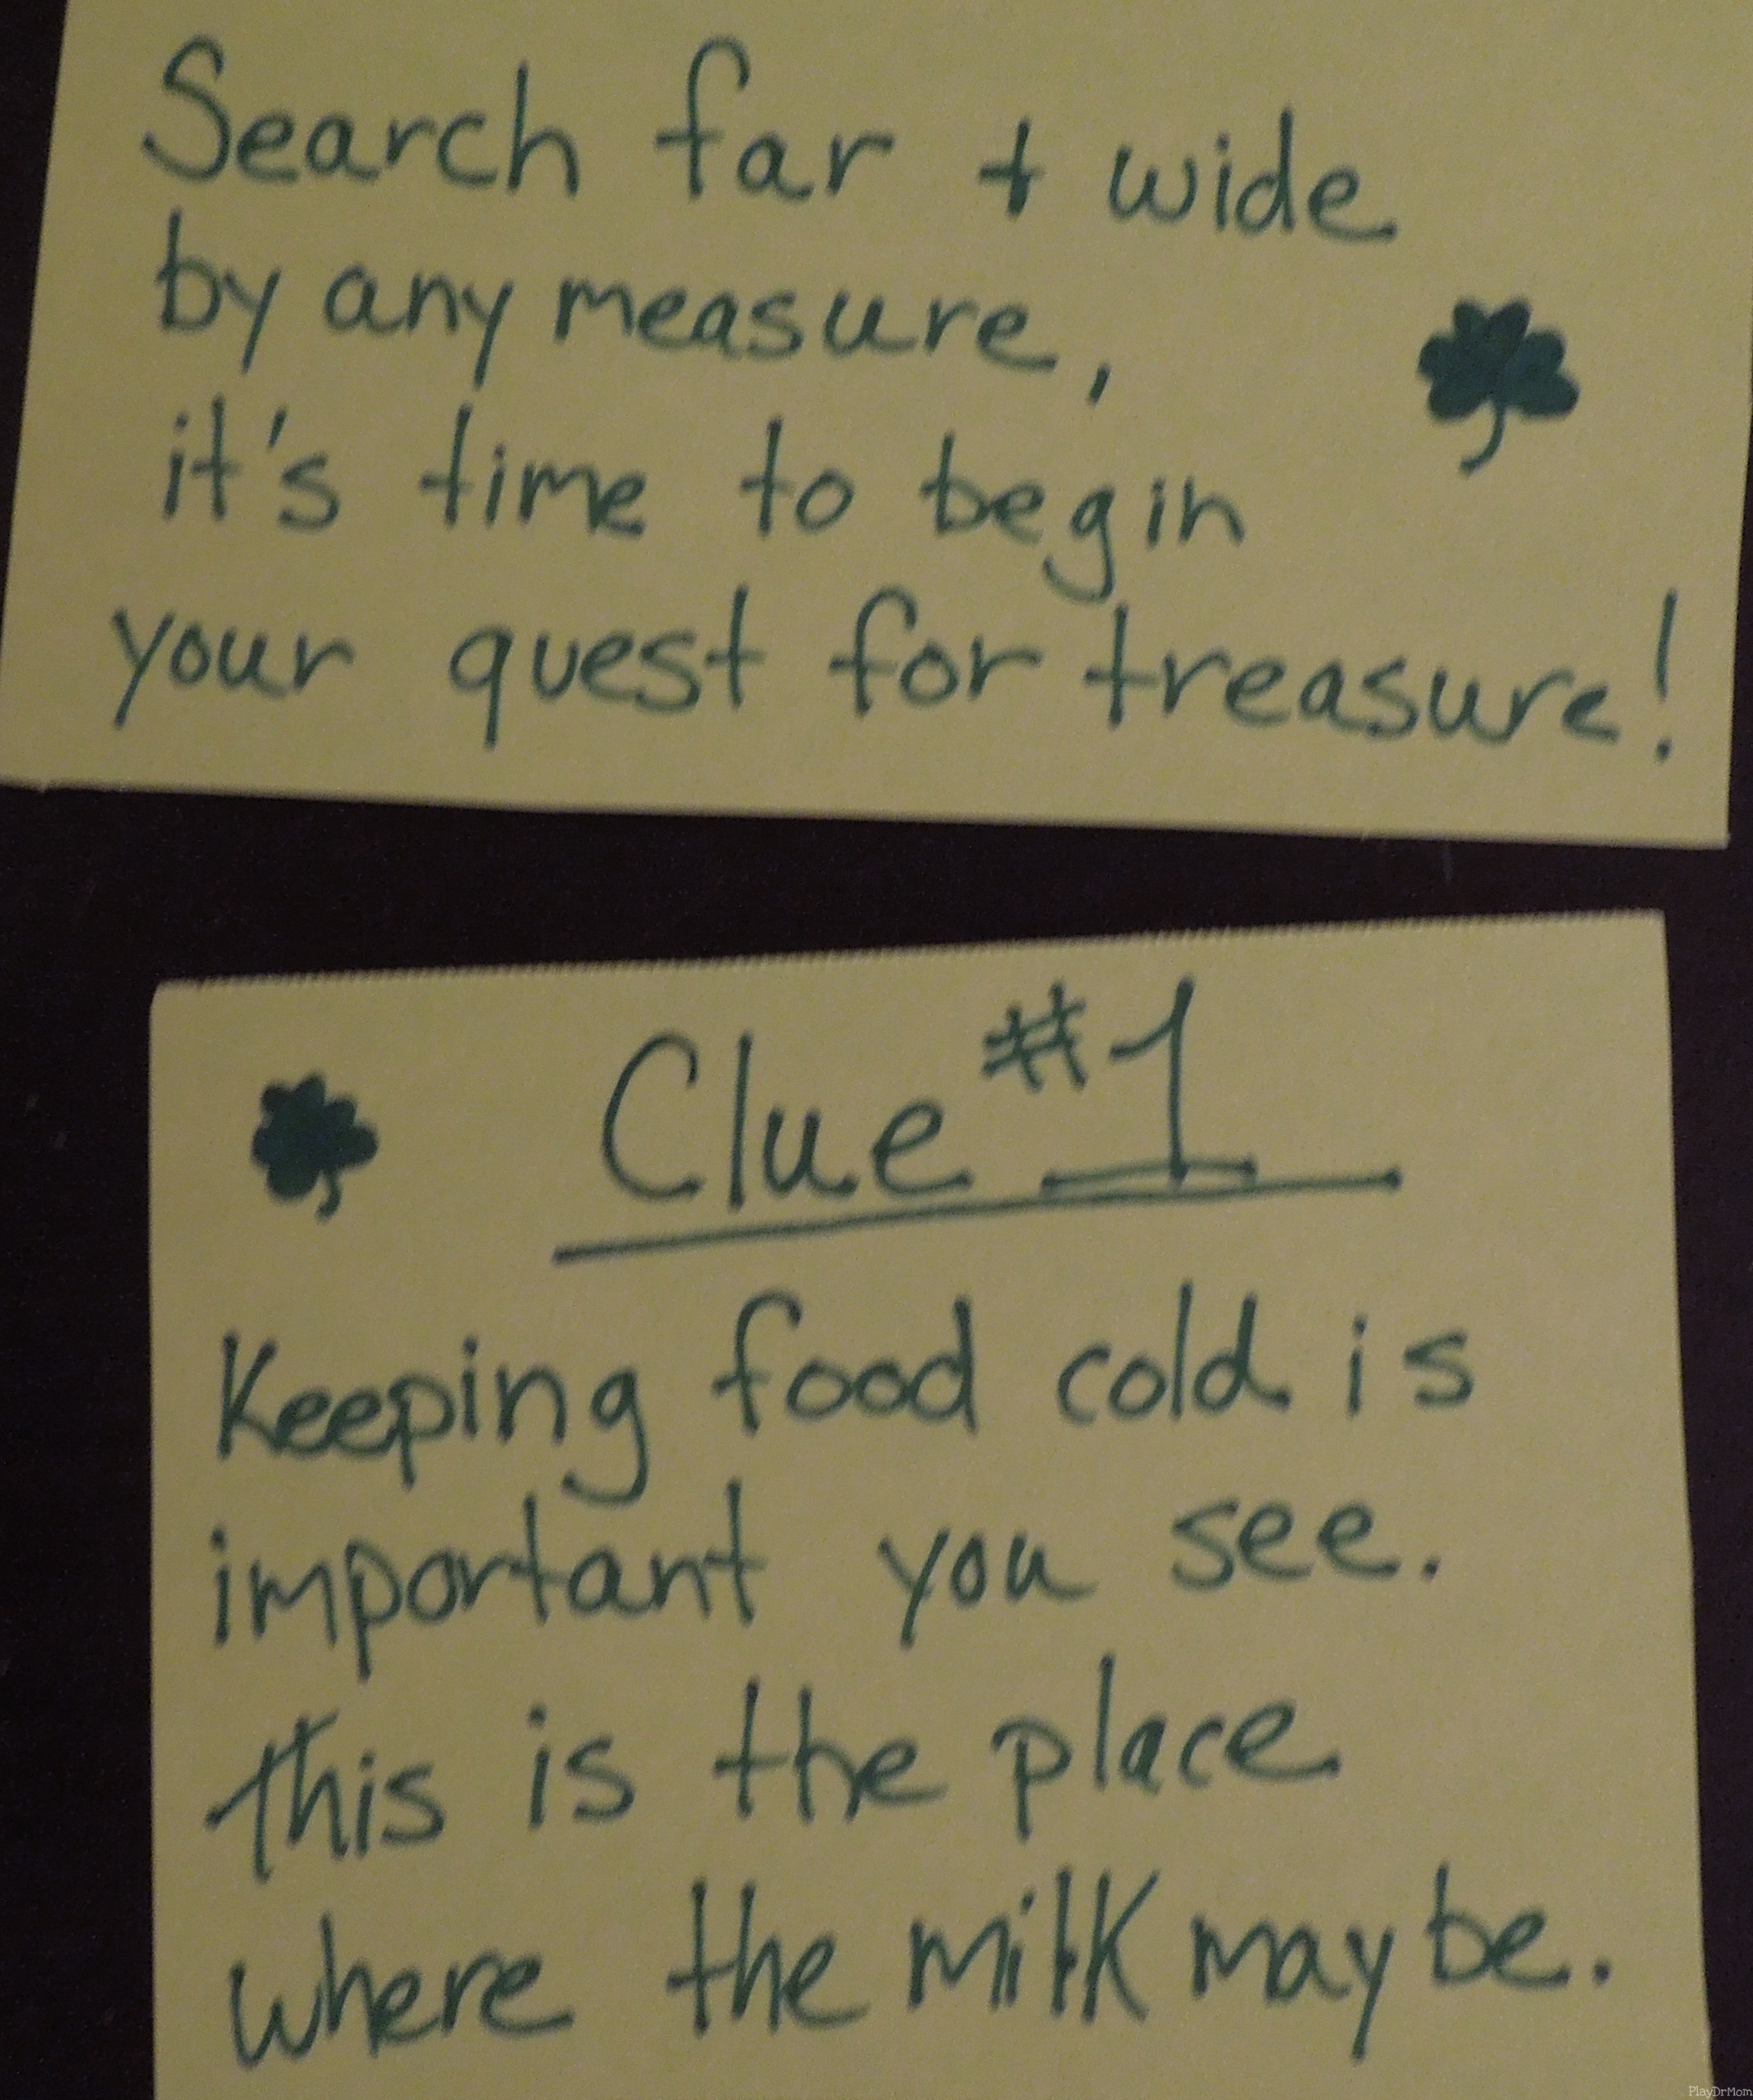 Search far + wide
by any measure,
it's time to begin
your quest for treasure!
Clue #1
Keeping food cold is
important you see.
This is the place
where the milk may be.
PlayDrMom